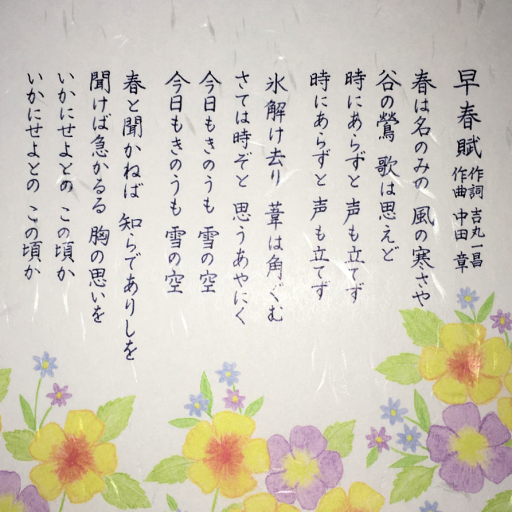 早春賦
作詞 吉丸一昌
作曲 中田 章
春は名のみの 風の寒さや
谷の鶯 歌は思えど
時にあらずと 声も立てず
時にあらずと 声も立てず
氷解け去り 葦は角ぐむ
さては時ぞと 思うあやにく
今日もきのうも 雪の空
今日もきのうも 雪の空
春と聞かねば 知らでありしを
聞けば急かるる 胸の思いを
いかにせよとの この頃か
いかにせよとの この頃か